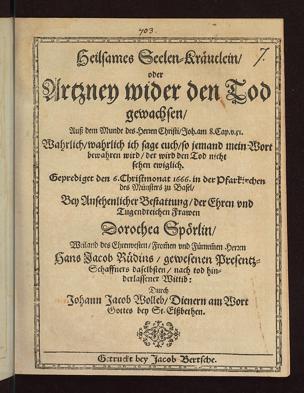 703.
7.
Heilsames Seelen-Kräutlein/
oder
Artzney wider den Tod
gewachsen/
Auß dem Munde des Herren Christi/ Joh. am 8. Cap. v. 51.
Wahrlich/ wahrlich ich sage euch/ so jemand mein Wort
bewahren wird/ der wird den Tod nicht
sehen ewiglich.
Geprediget den 6. Christmonat 1666. in der Pfarkirchen
des Münsters zu Basel/
Bey Ansehenlicher Bestattung/ der Ehren und
Tugendreichen Frawen
Dorothea Spörlin/
Weiland des Ehrenvesten/ Frommen und Fürnemen Herren
Hans Jacob Rüdins/ gewesenen Presentz-
Schaffners daselbsten/ nach tod hin-
derlassener Wittib:
Durch
Johann Jacob Wolleb/ Dienern am Wort
Gottes bey St. Elßbethen.
Getruckt bey Jacob Bertsche.